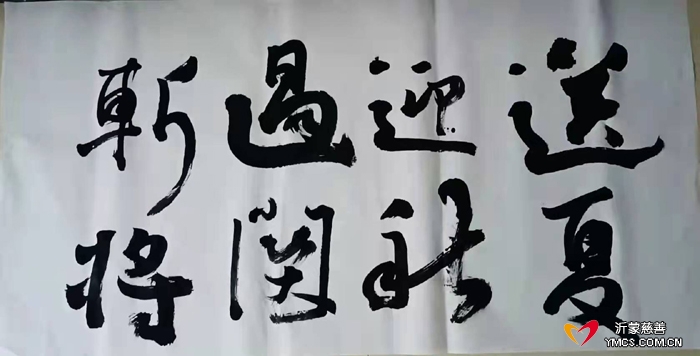 送夏
迎秋
過関
斬將
沂蒙慈善
YMCS.COM.CN